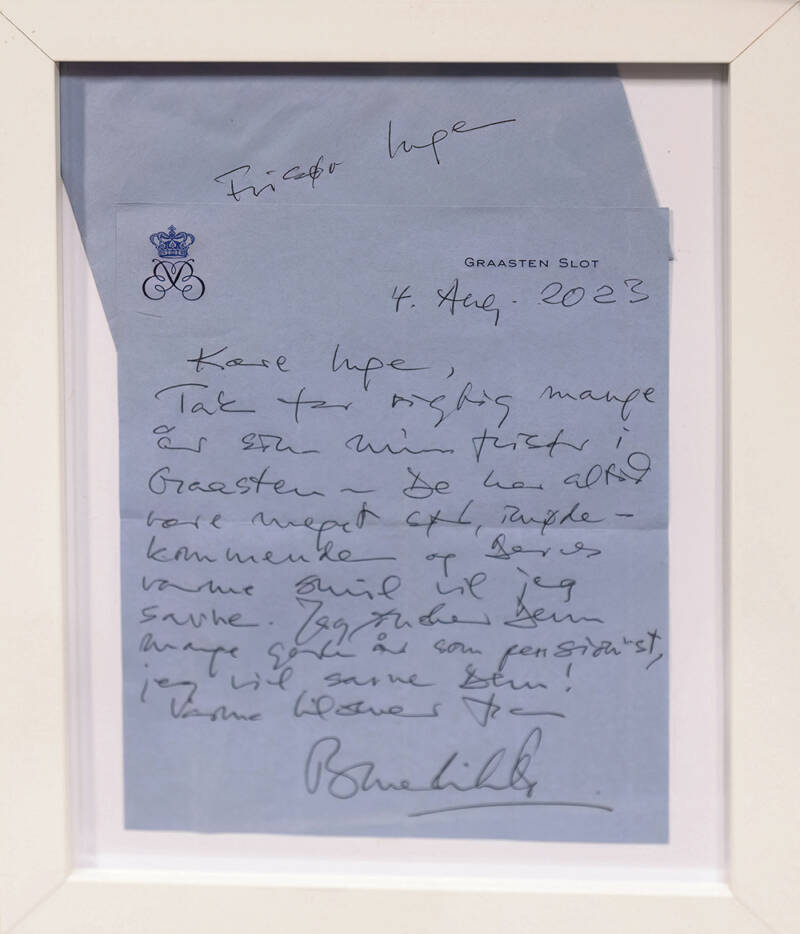 Frisør Inge
GRAASTEN SLOT
4. Aug. 2023
Kære Inge,
Tak for rigtig mange
år som min frisør i
Graasten – De har altid
være meget sød, imøde-
kommende og Deres
varme smil vil jeg
savne. Jeg ønsker Dem
mange gode år som pensionist,
jeg vil savne Dem!
Varme hilsner fra
Benedikte